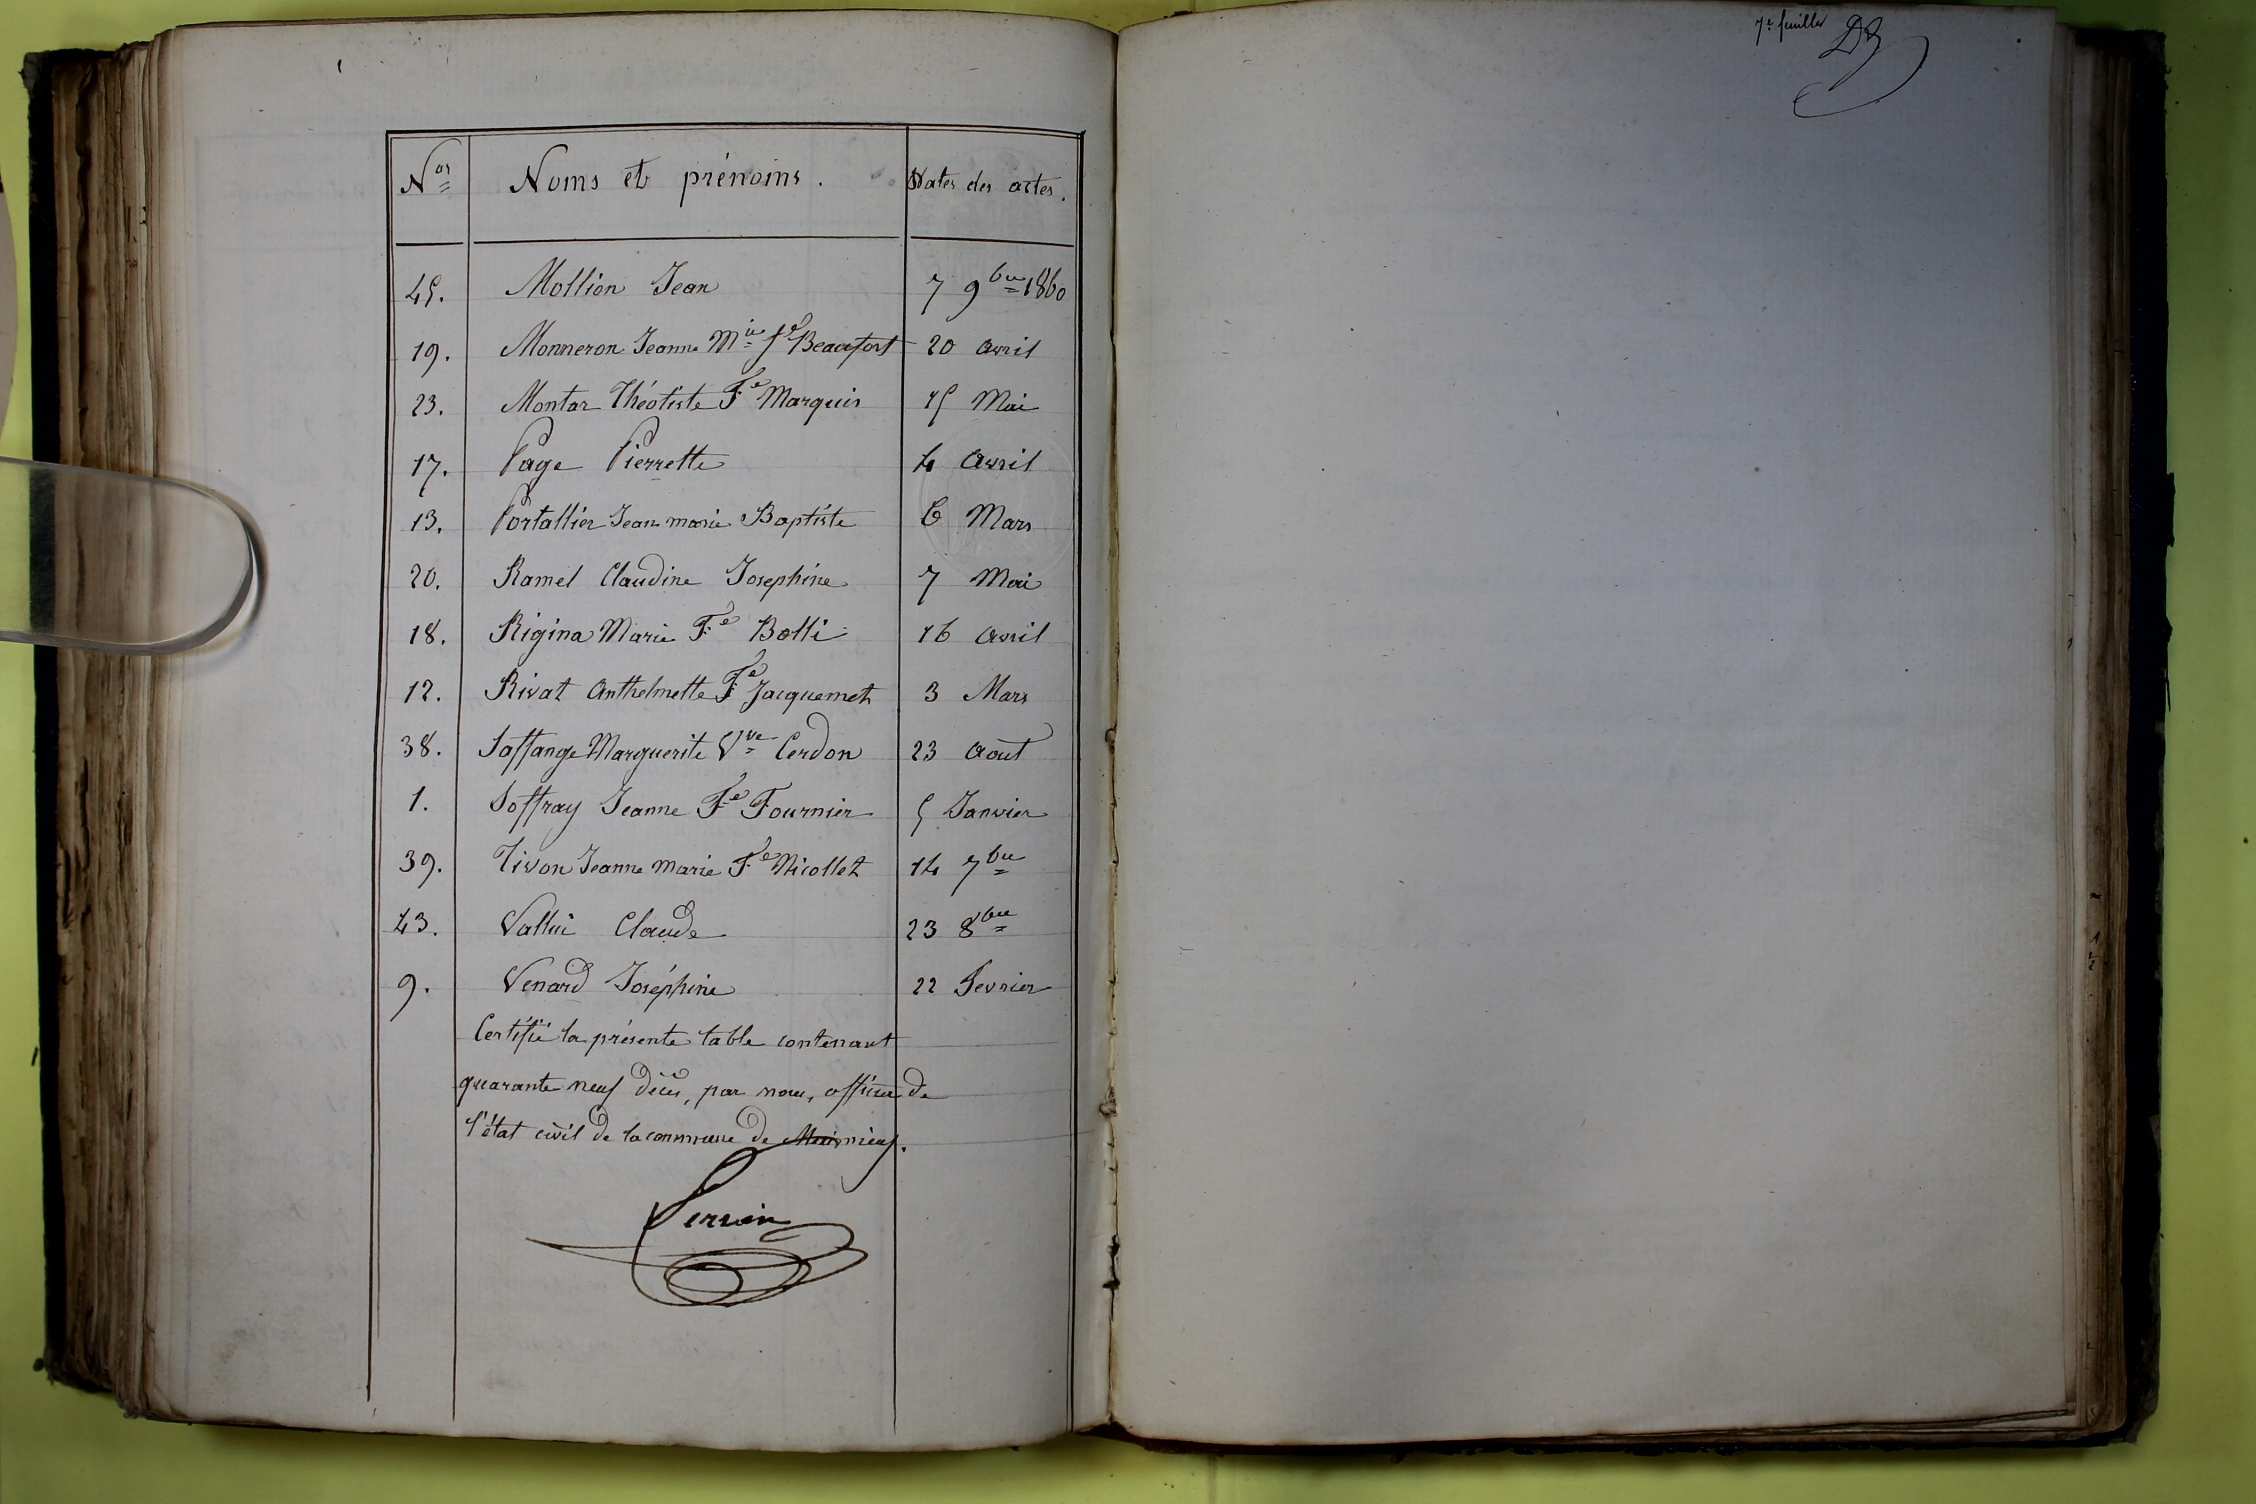 7e feuillet
Nos Noms et prénoms. Dates des actes.
45. Mollion Jean 7 9bre 1860
19. Monneron Jeanne Mie fe Beaufort 20 avril
23. Montar Théotiste Fe Marquis 15 Mai
17. Page Pierrette 4 avril
13. Portallier Jean marie Baptiste 6 Mars
20. Ramel Claudine Josephine 7 Mai
18. Rigina Marie Fe Bolli 16 avril
12. Rivat Anthelmette Fe Jacquemet 3 Mars
38. Soffange Marguerite Vve Cerdon 23 Aout
1. Soffray Jeanne Fe Fournier 5 Janvier
39. Tivon Jeanne marie Fe Nicollet 14 7bre
43. Claude 23 8bre
9. Venard Joséphine 22 Fevrier
Certifié la présente table contenant
quarante neuf décès, par nous, officier de
l'état civil de la commune de
Perrin